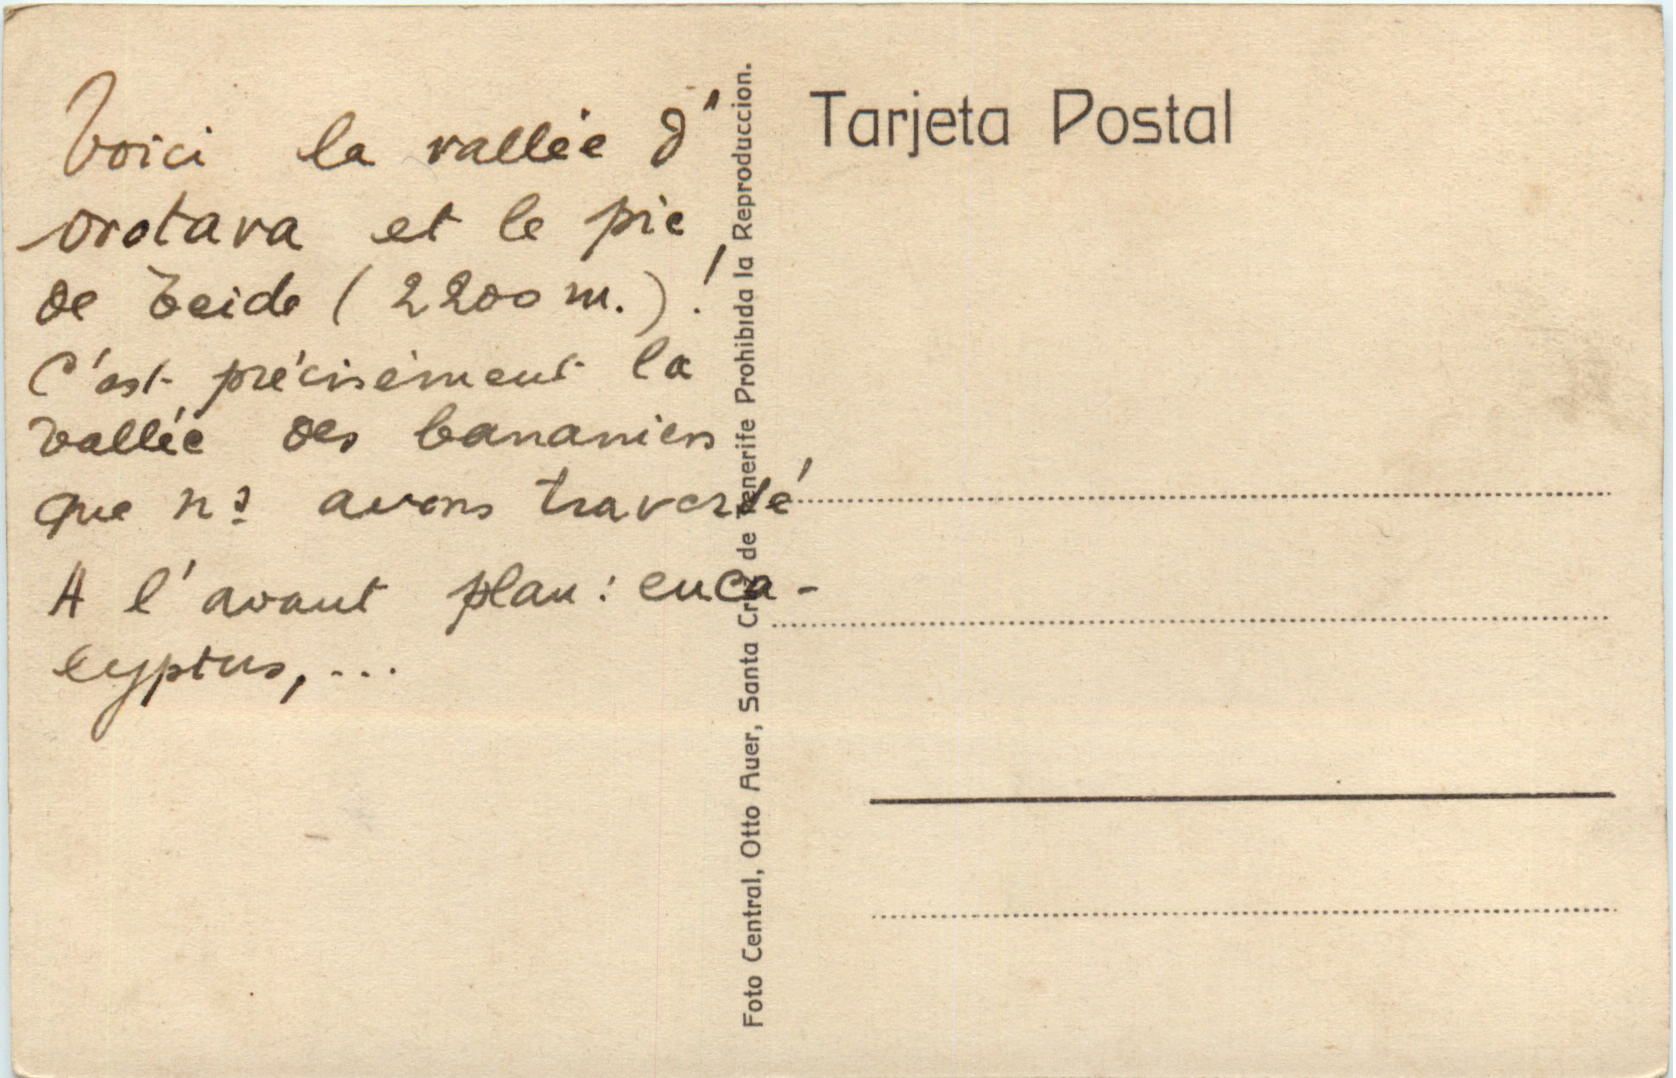 Voici la vallée d'
Orotava et le pic
de Teide (2200 m.)!
C'est précisément la
vallée des bananiers
que ns avons traversé
A l'avant plan: euca-
lyptus, ...
Foto Central, Otto Auer, Santa Cruz de Tenerife Prohibida la Reproduccion.
Tarjeta Postal